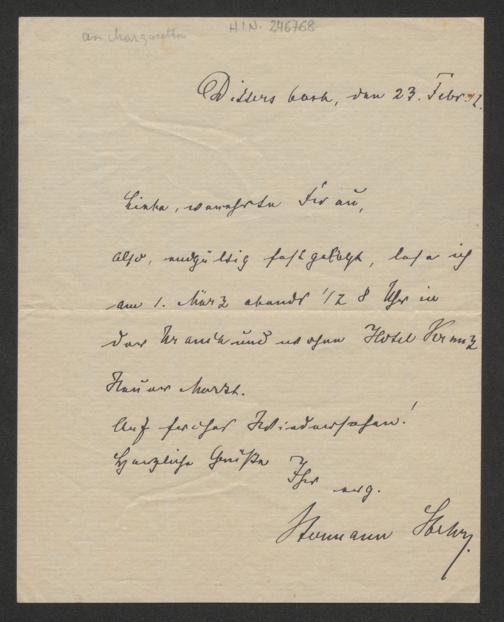 an Margarethe
H.I.N. 246768
Dittersbach, den 23. Febr.
Liebe, verehrte Frau,
also, endgültig festgelegt, lese ich
am 1. März abends 1/2 8 Uhr in
der Urania und wohne Hotel Krantz
Neuer Markt.
Auf frohes Wiedersehen!
Herzliche Grüße Ihr
erg.
Hermann Stehr